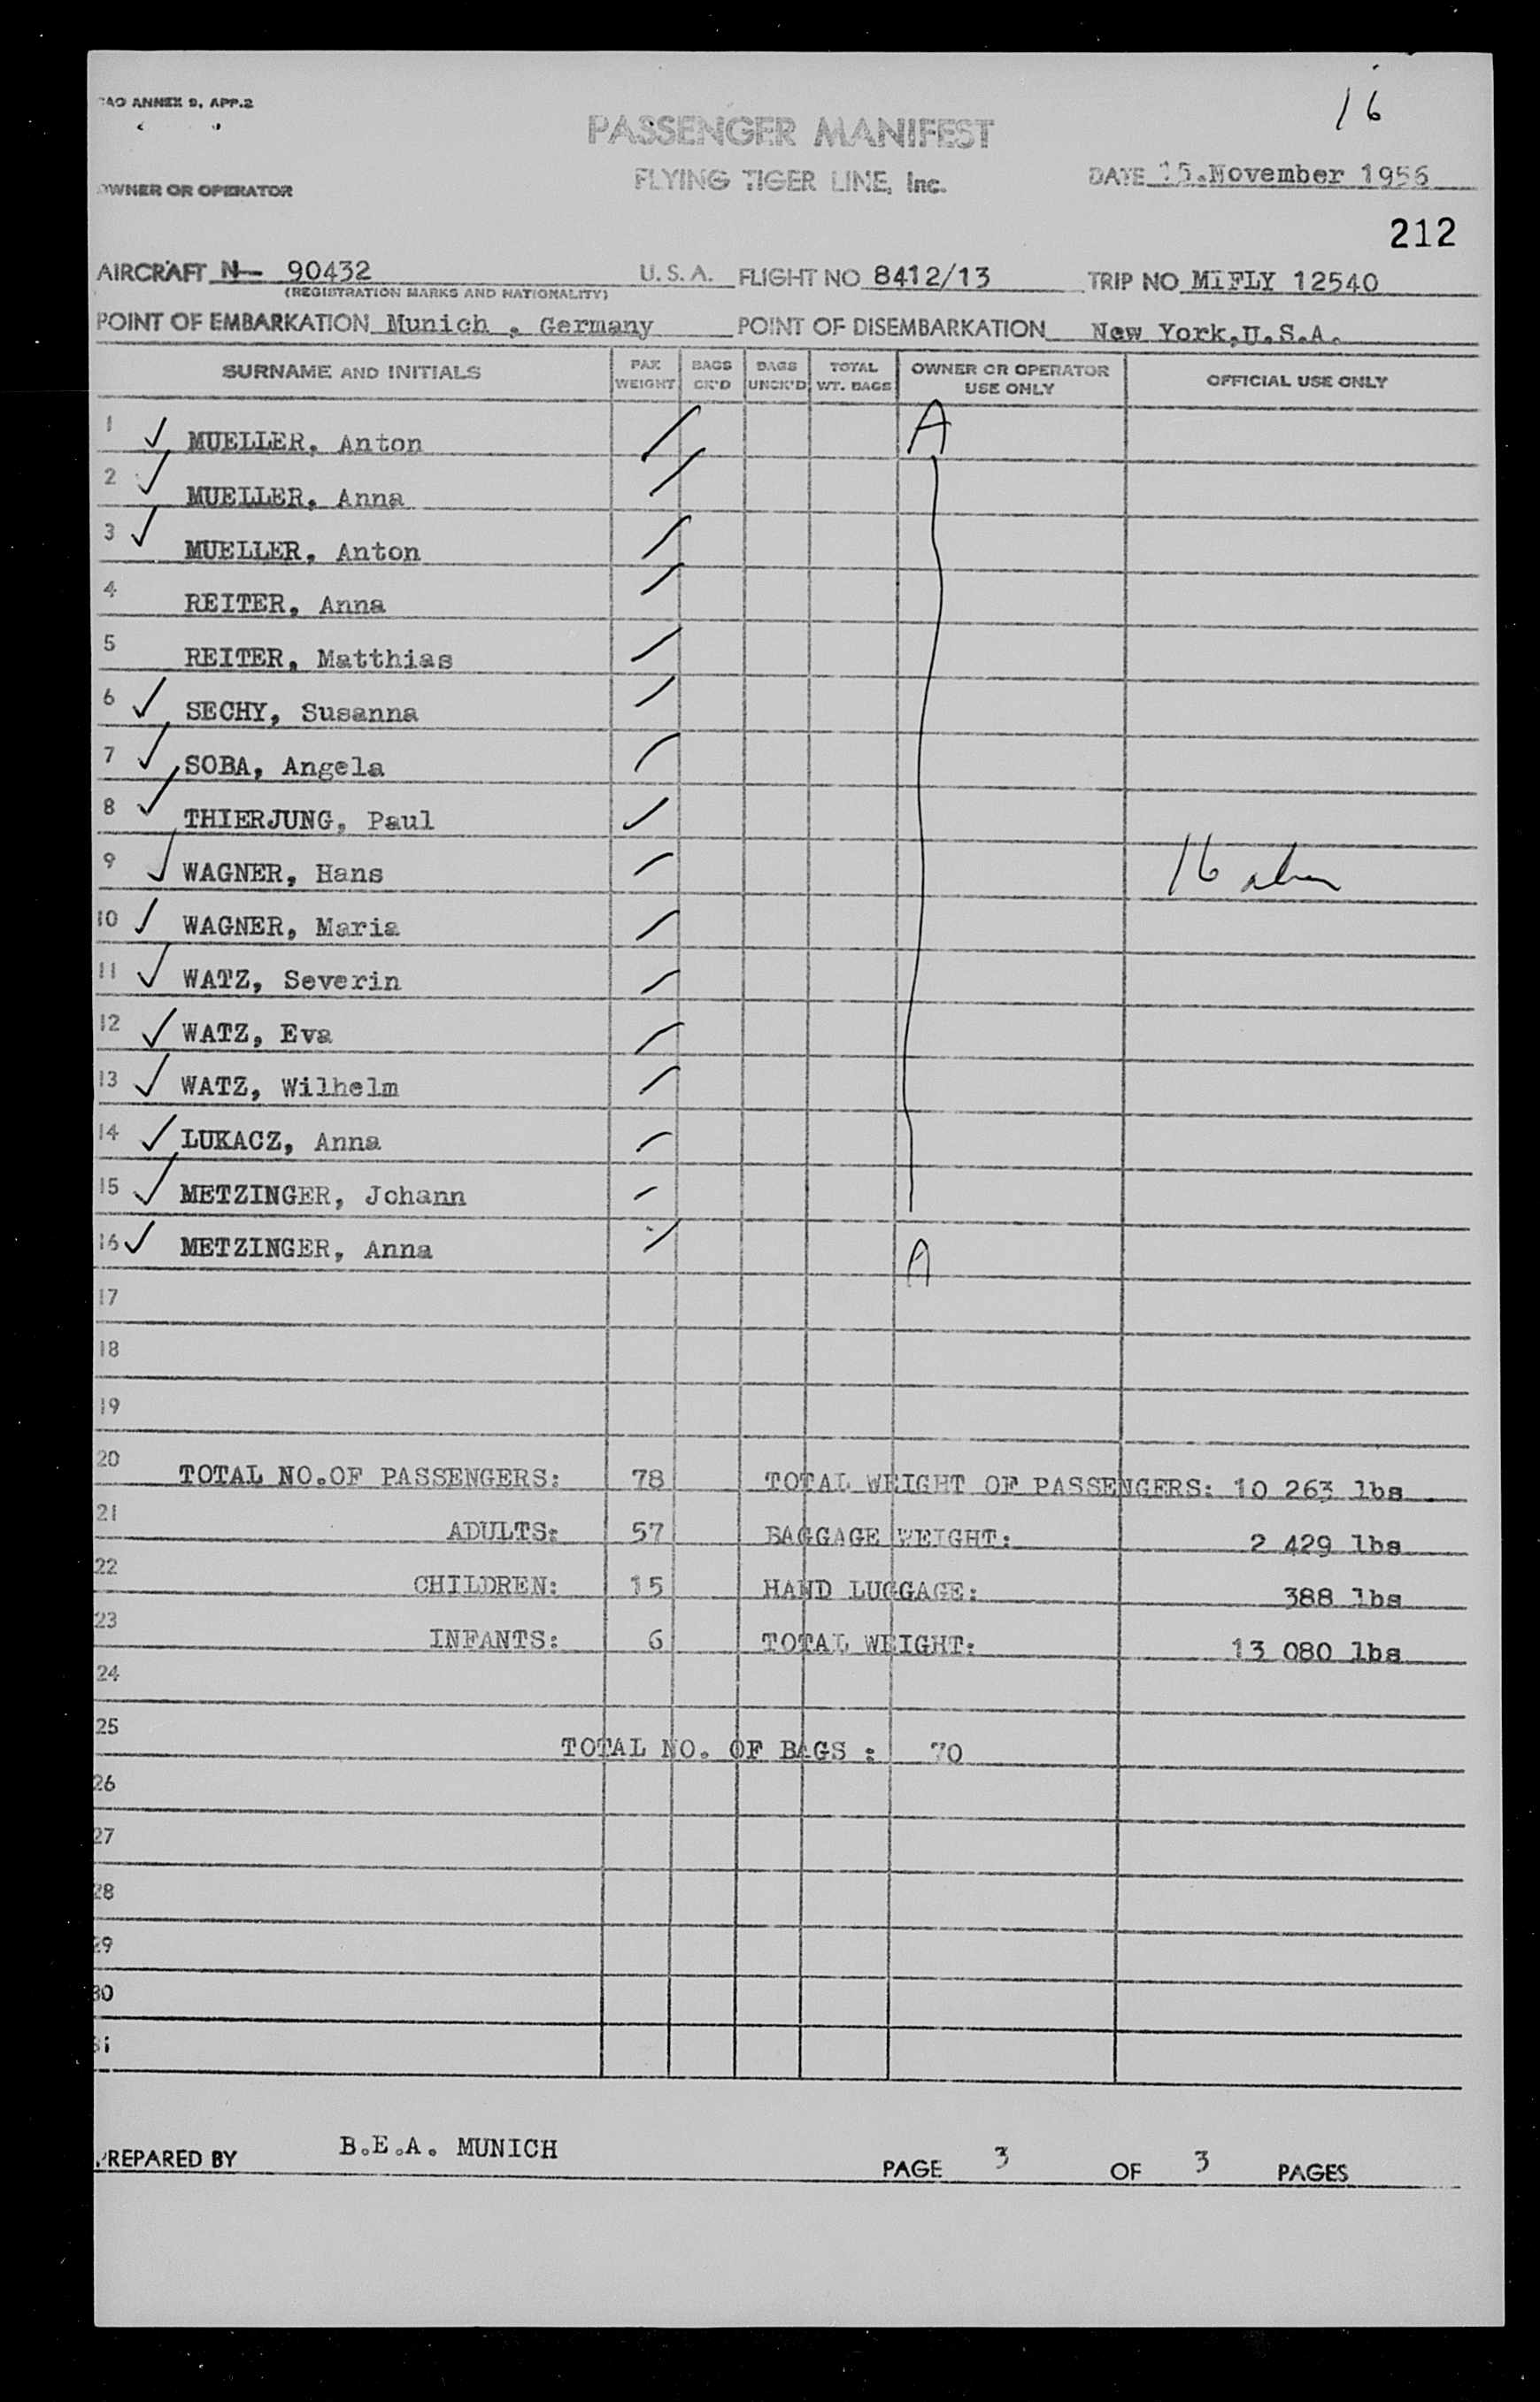 16
CAO ANNEX 9, APP.2
PASSENGER MANIFEST
OWNER OR OPERATOR
FLYING TIGER LINE, Inc.
DATE 15.November 1956
212
AIRCRAFT N- 90432 U.S.A. FLIGHT NO 8412/13 TRIP NO MIFLY 12540
(REGISTRATION MARKS AND NATIONALITY)
POINT OF EMBARKATION Munich , Germany POINT OF DISEMBARKATION New York,U.S.A.
SURNAME AND INITIALS PAX WEIGHT BAGS CK'D BAGS UNCK'D TOTAL WT. BAGS OWNER OR OPERATOR USE ONLY OFFICIAL USE ONLY
1 ✓ MUELLER, Anton A
2 ✓ MUELLER, Anna
3 ✓ MUELLER, Anton
4 REITER, Anna
5 REITER, Matthias
6 ✓ SECHY, Susanna
7 ✓ SOBA, Angela
8 ✓ THIERJUNG, Paul
9 ✓ WAGNER, Hans 16
10 ✓ WAGNER, Maria
11 ✓ WATZ, Severin
12 ✓ WATZ, Eva
13 ✓ WATZ, Wilhelm
14 ✓ LUKACZ, Anna
15 ✓ METZINGER, Johann
16 ✓ METZINGER, Anna A
17
18
19
20 TOTAL NO.OF PASSENGERS: 78 TOTAL WEIGHT OF PASSENGERS: 10 263 lbs
21 ADULTS: 57 BAGGAGE WEIGHT: 2 429 lbs
22 CHILDREN: 15 HAND LUGGAGE: 388 lbs
23 INFANTS: 6 TOTAL WEIGHT: 13 080 lbs
24
25 TOTAL NO. OF BAGS : 70
26
27
28
29
30
31
PREPARED BY B.E.A. MUNICH PAGE 3 OF 3 PAGES